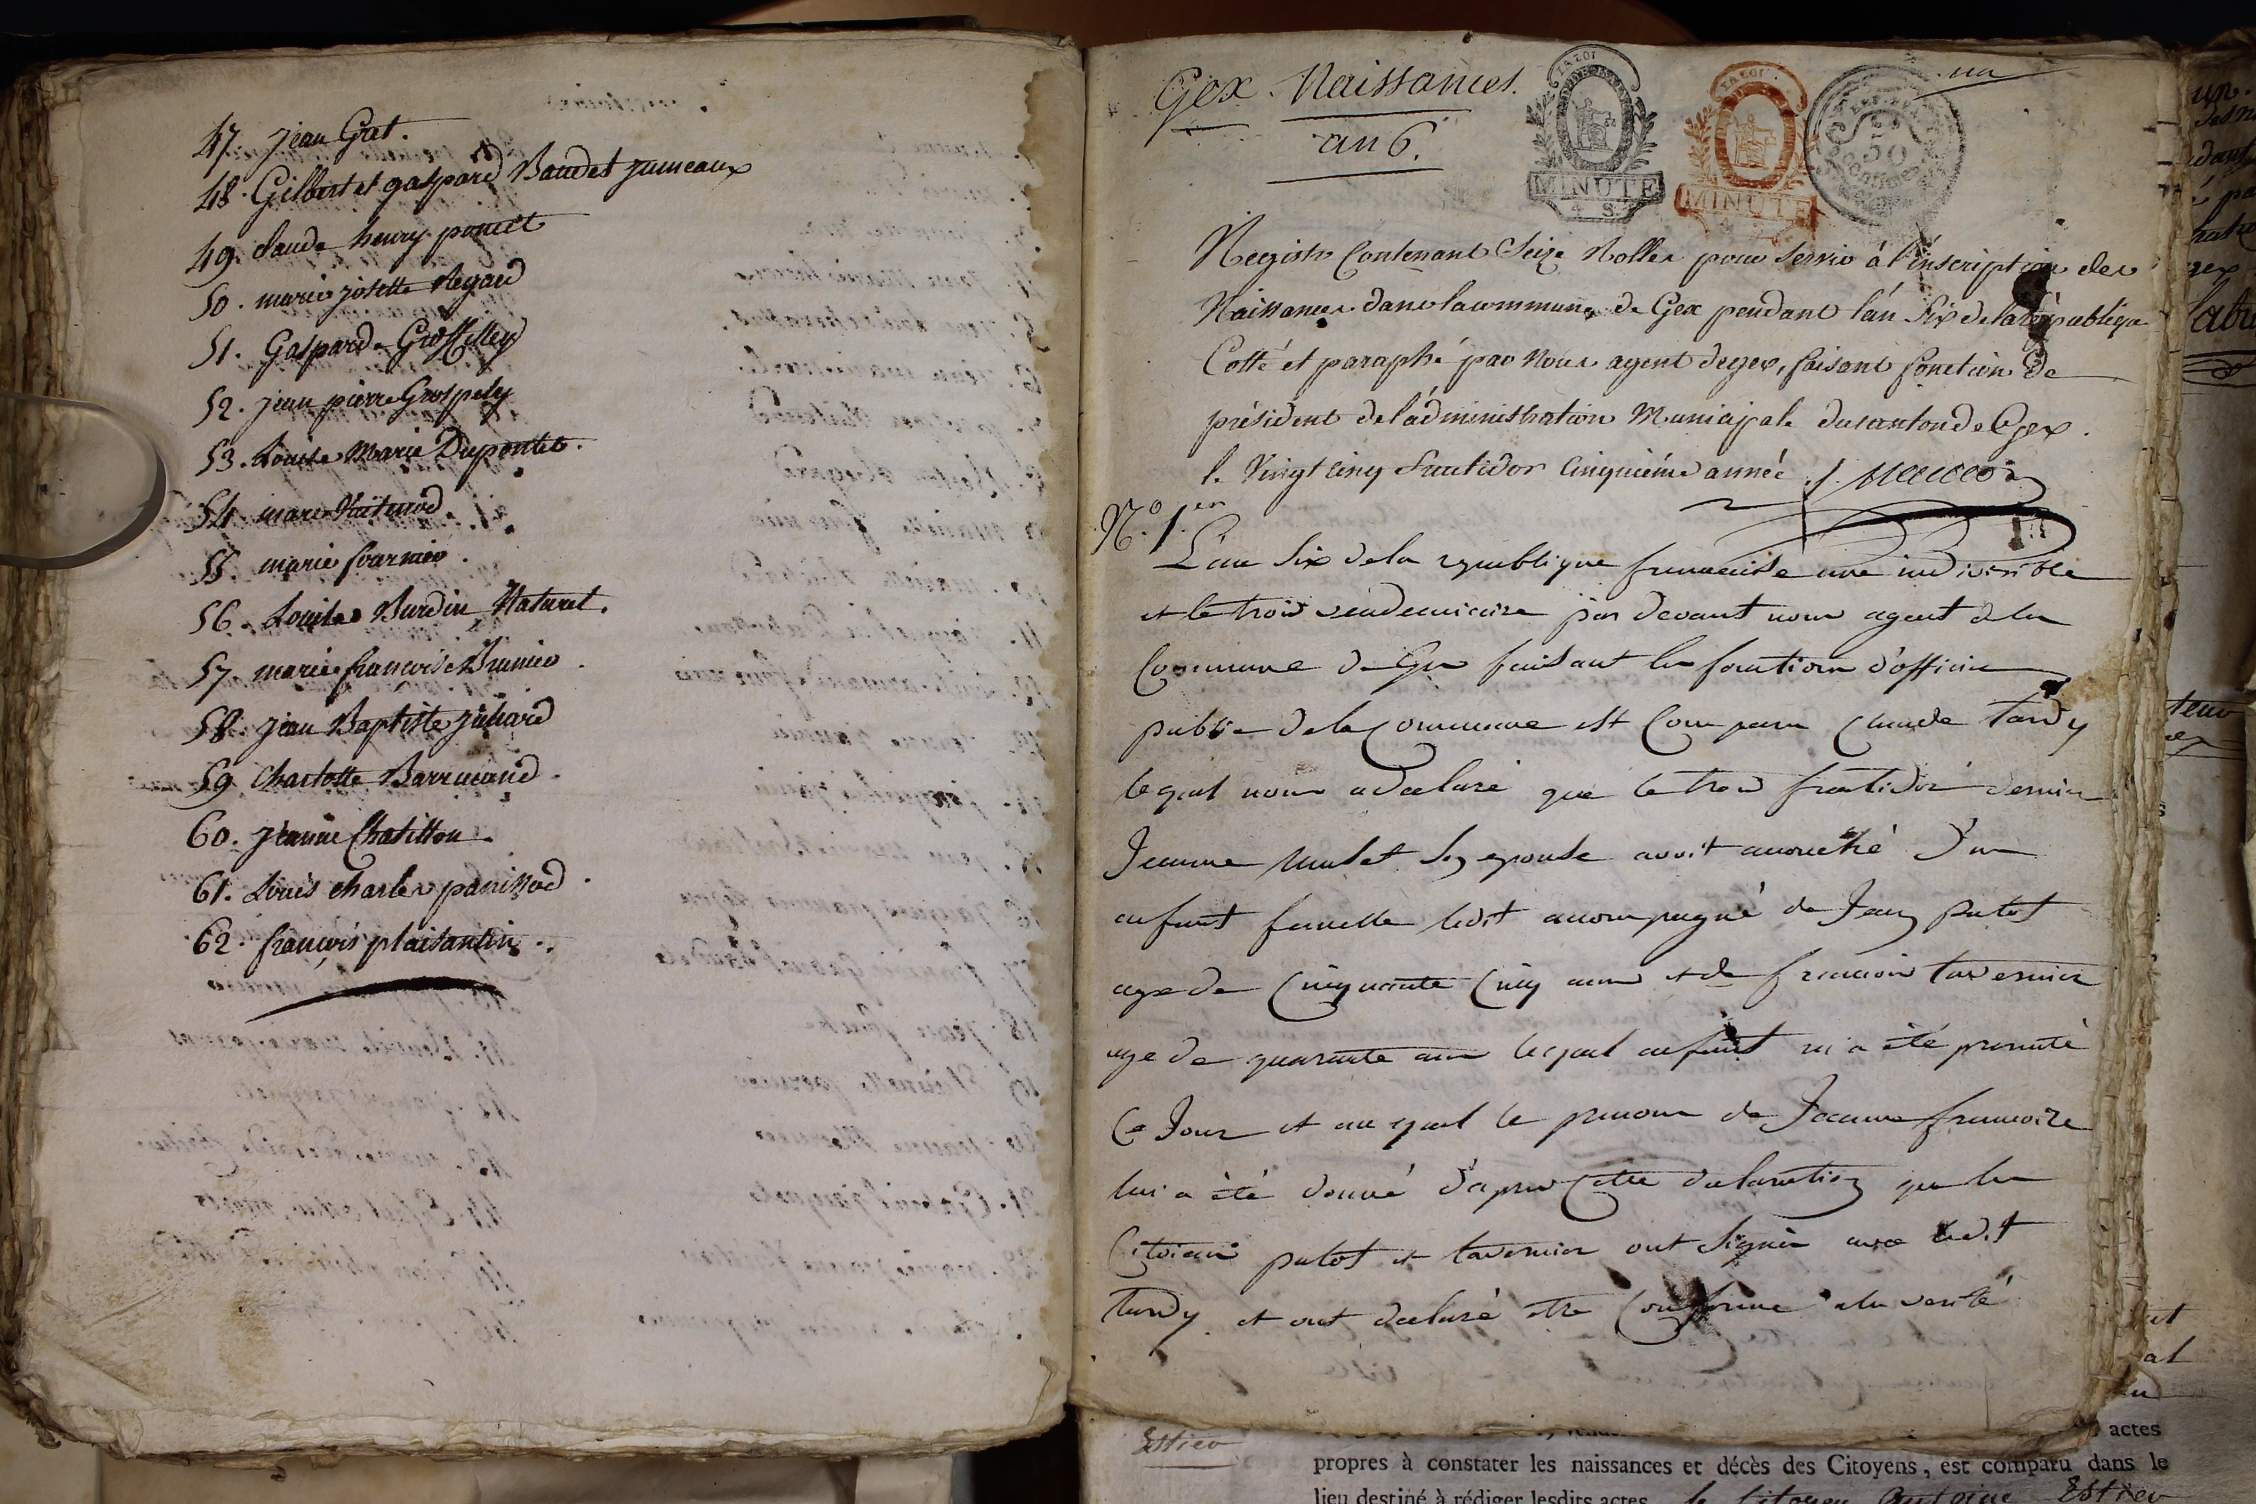 47. jean Grat.
48. Gilbert et gaspard Baudet jumeaux
49. claude henry poncet
50. marie josette Regard
51. Gaspard Grossilley
52. jean pierre Grospely
53. Louise Marie Dupontet.
54. marc Vuitenod
55. marie fournier.
56. Louise Burdin, Naturel.
57. marie françoise Brunier.
58. jean Baptiste juliard
59. Charlotte Barrucand.
60. jeanne Chatillon.
61. Louis charles panissod.
62. françois plaisantin.
Gex. Naissances.
an 6.
un
LA LOI
MINUTE
4 S
LA LOI
MINUTE
50
Centimes
Registre Contenant Seize Rolles pour servir à l'inscription des
Naissances dans la commune de Gex pendant l'an six de la république
Cotté et paraphé par Nous agent de gex, faisant fonction de
président de l'administration Municipale du canton de Gex.
le Vingt cinq fructidor cinquième année.
N.º 1.er
L'an six de la republique francaise une indivisible
et le trois vendemiaire par devant nous agent de la
Commune de Gex faisant les fonctions d'officier
public de la Commune est Comparu Claude Tardy
lequel nous a déclaré que le trois fructidor dernier
Jeanne Mulet son epouse avoit accouché d'un
enfant femelle ledit accompagné de Jean patot
age de Cinquante Cinq ans et de francois tavernier
age de quarante ans lequel enfant m'a été presenté
Ce Jour et au quel le prenom de Jeanne francoise
lui a été donné d'apres Cette declaration que les
Citoiens patot et tavernier ont signés avec ledit
Tardy et ont declaré etre Conforme a la verité
Estier
actes
propres à constater les naissances et décès des Citoyens, est comparu dans le
lieu destiné à rédiger lesdits actes le Citoyen Antoine Estier